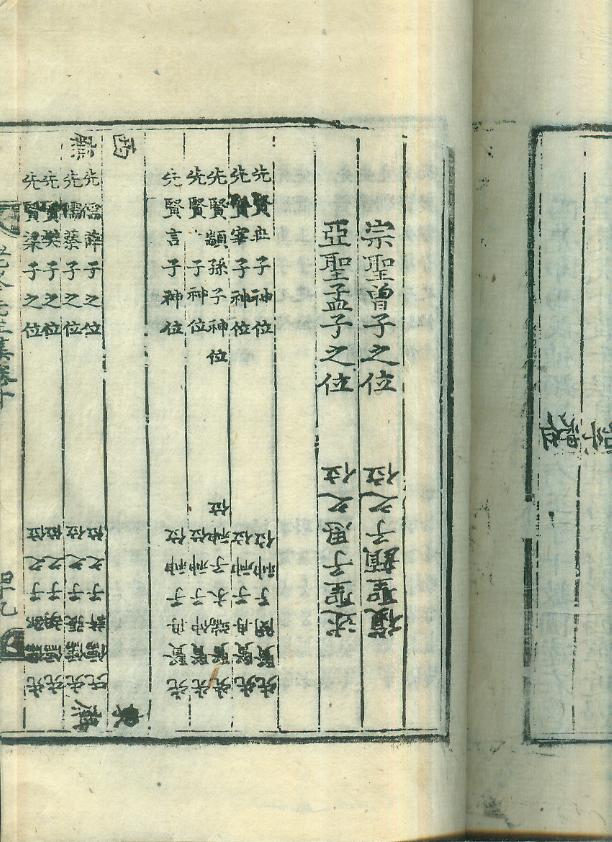 宗聖曾子之位
復聖顏子之位
亞聖孟子之位
述聖子思之位
先賢冉子神位
先賢閔子神位
先賢宰子神位
先賢冉子神位
先賢顓孫子神位
先賢端木子神位
先賢子神位
先賢仲子神位
先賢言子神位
先賢冉子神位
西廡
東廡
先儒薛子之位
先儒許子之位
先儒蔡子之位
先儒張子之位
子之位
先儒胡子之位
先子之位
先儒子之位
先生集卷十